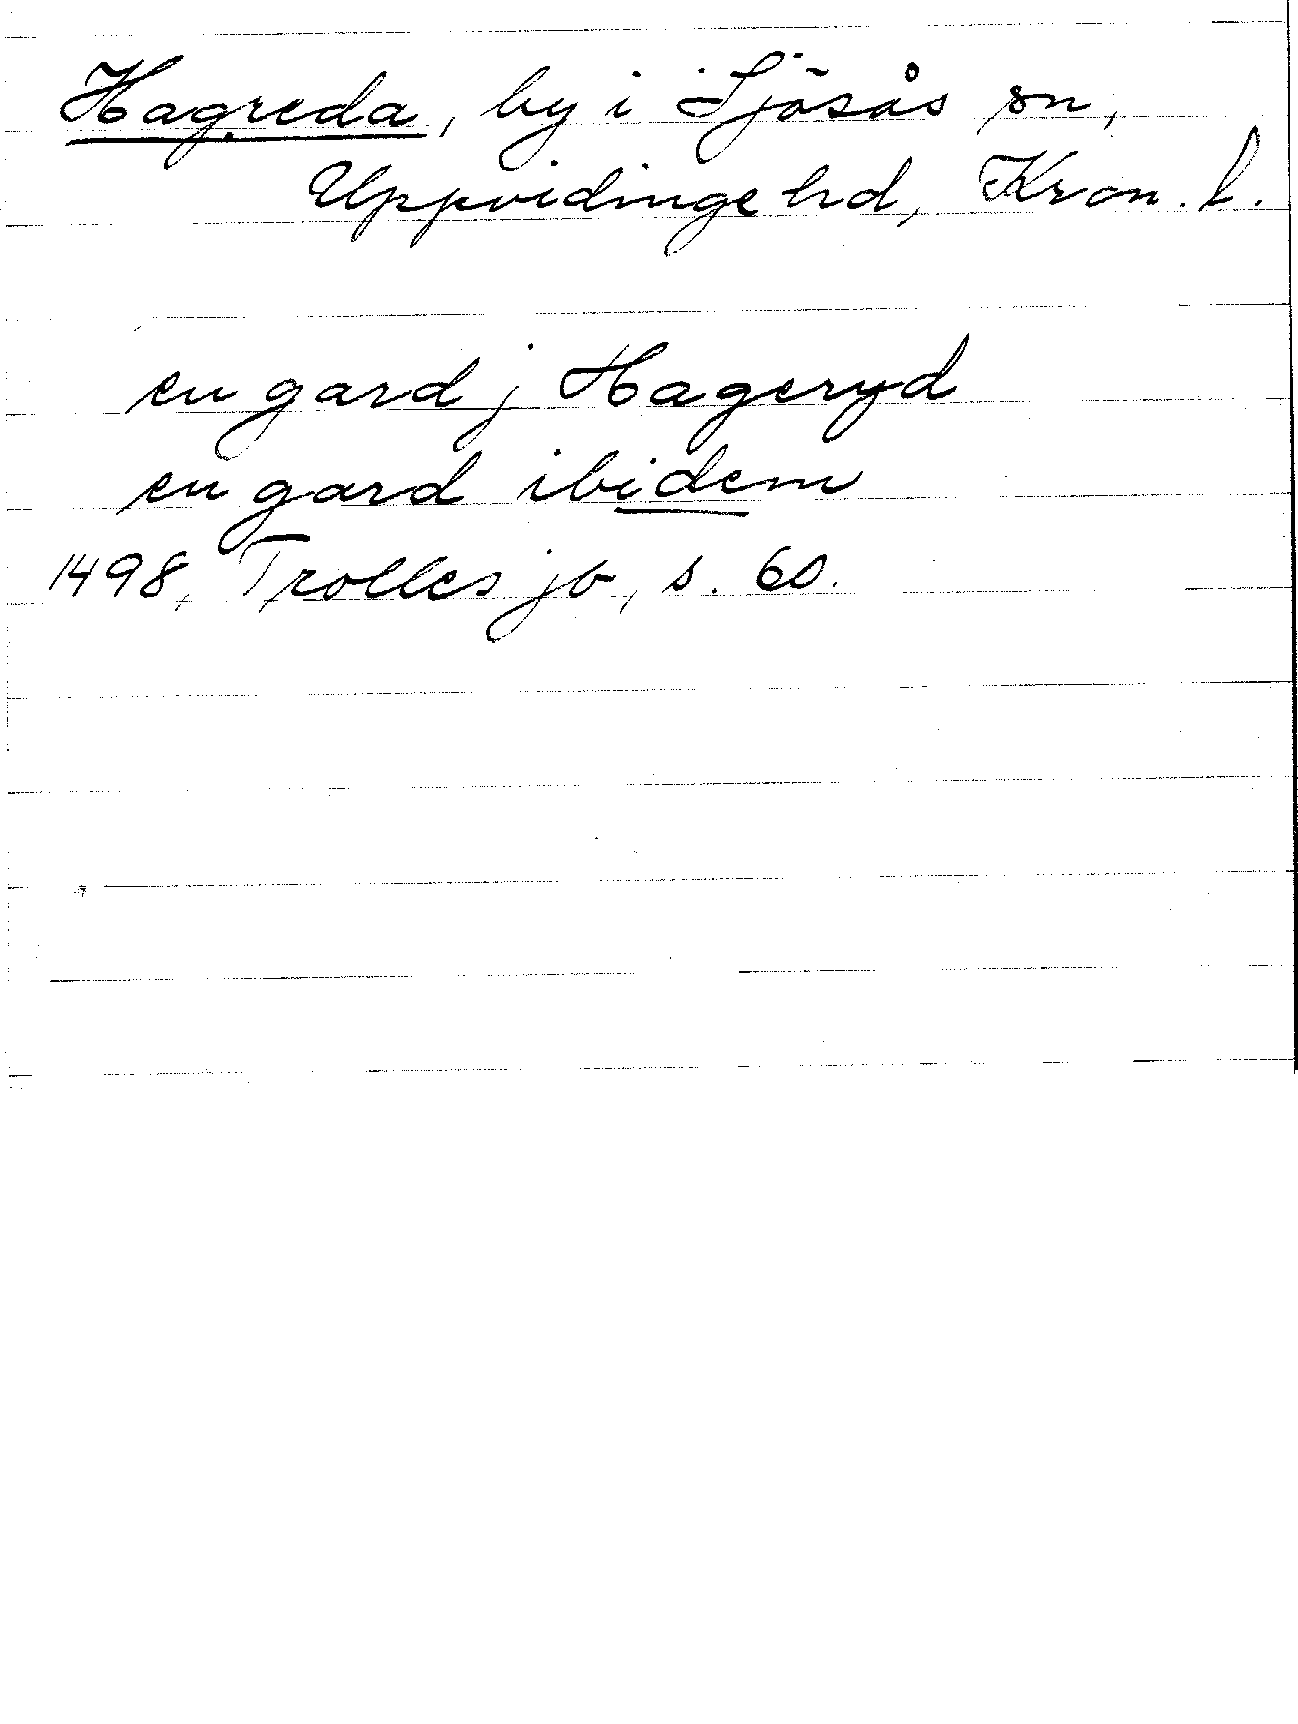 Hagreda, by i Sjösås sn,
Uppvidinge hd, Kron. l.
en gard j Hageryd
en gard ibidem
1498, Trolles jb, s. 60.